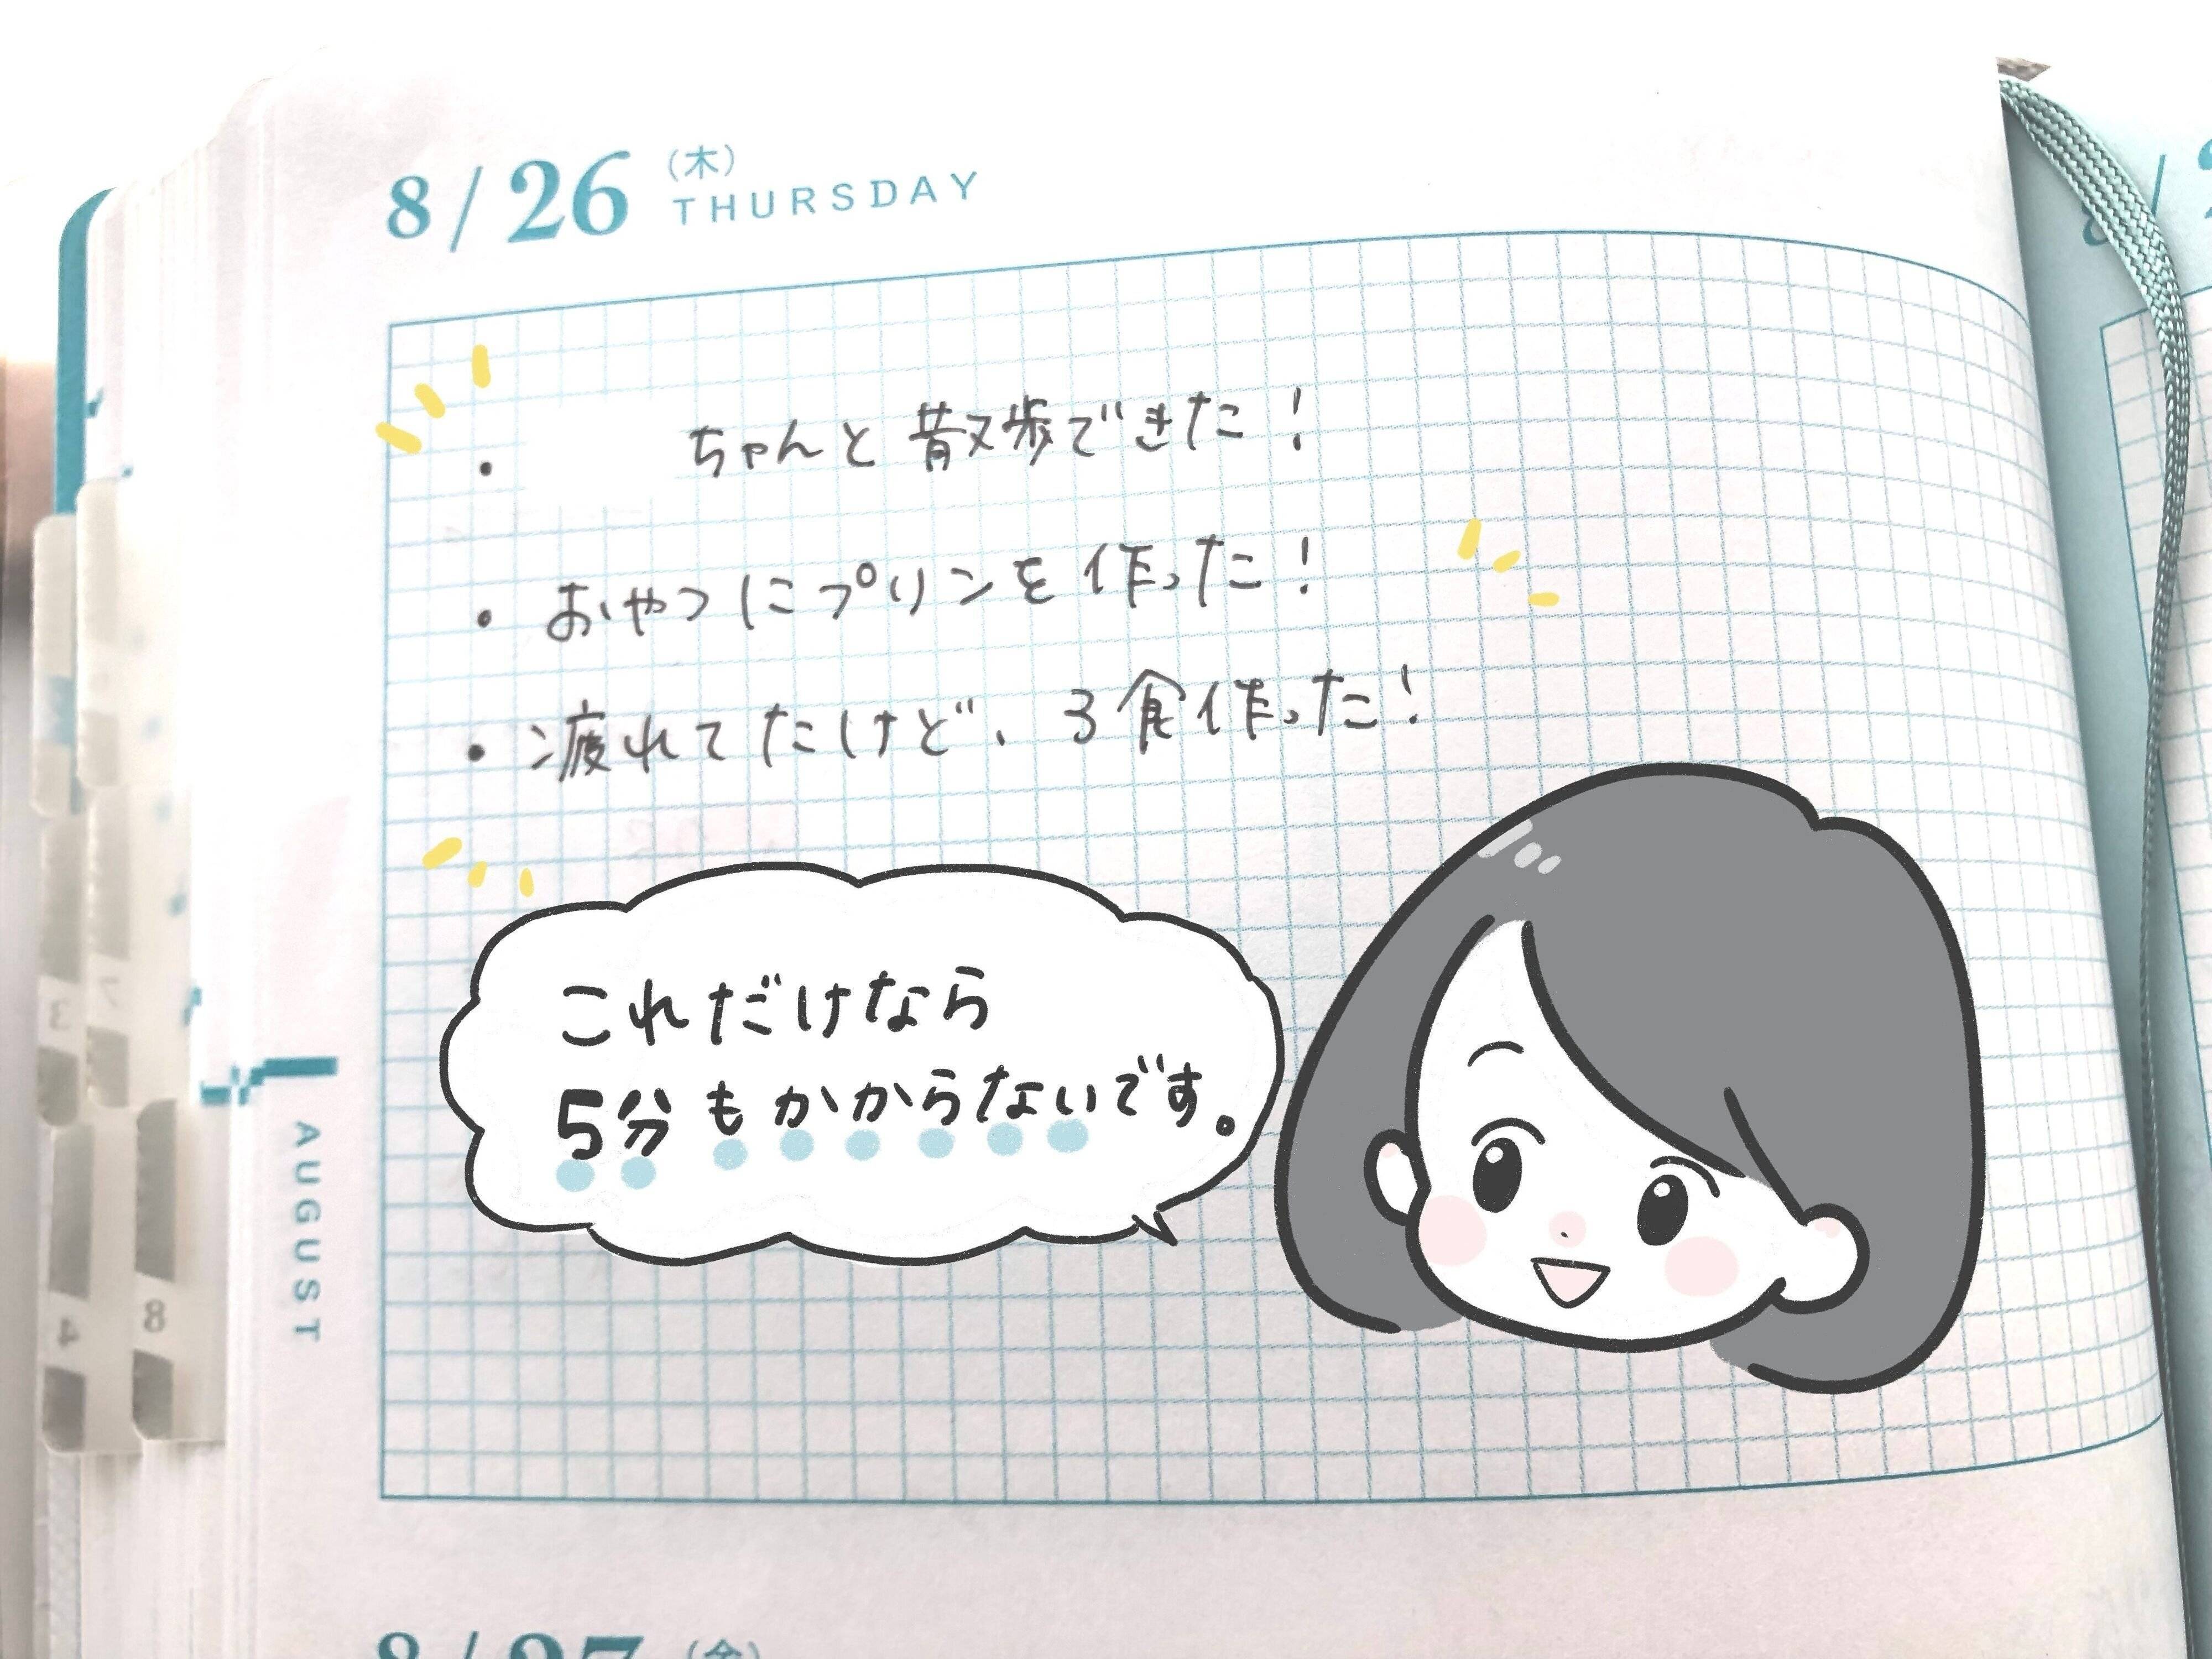 8/26 (木)
THURSDAY
・ ちゃんと散歩できた!
・おやつにプリンを作った!
・疲れてたけど、3食作った!
これだけなら
5分もかからないです。
AUGUST
3
7
4
8
8/27 (金)